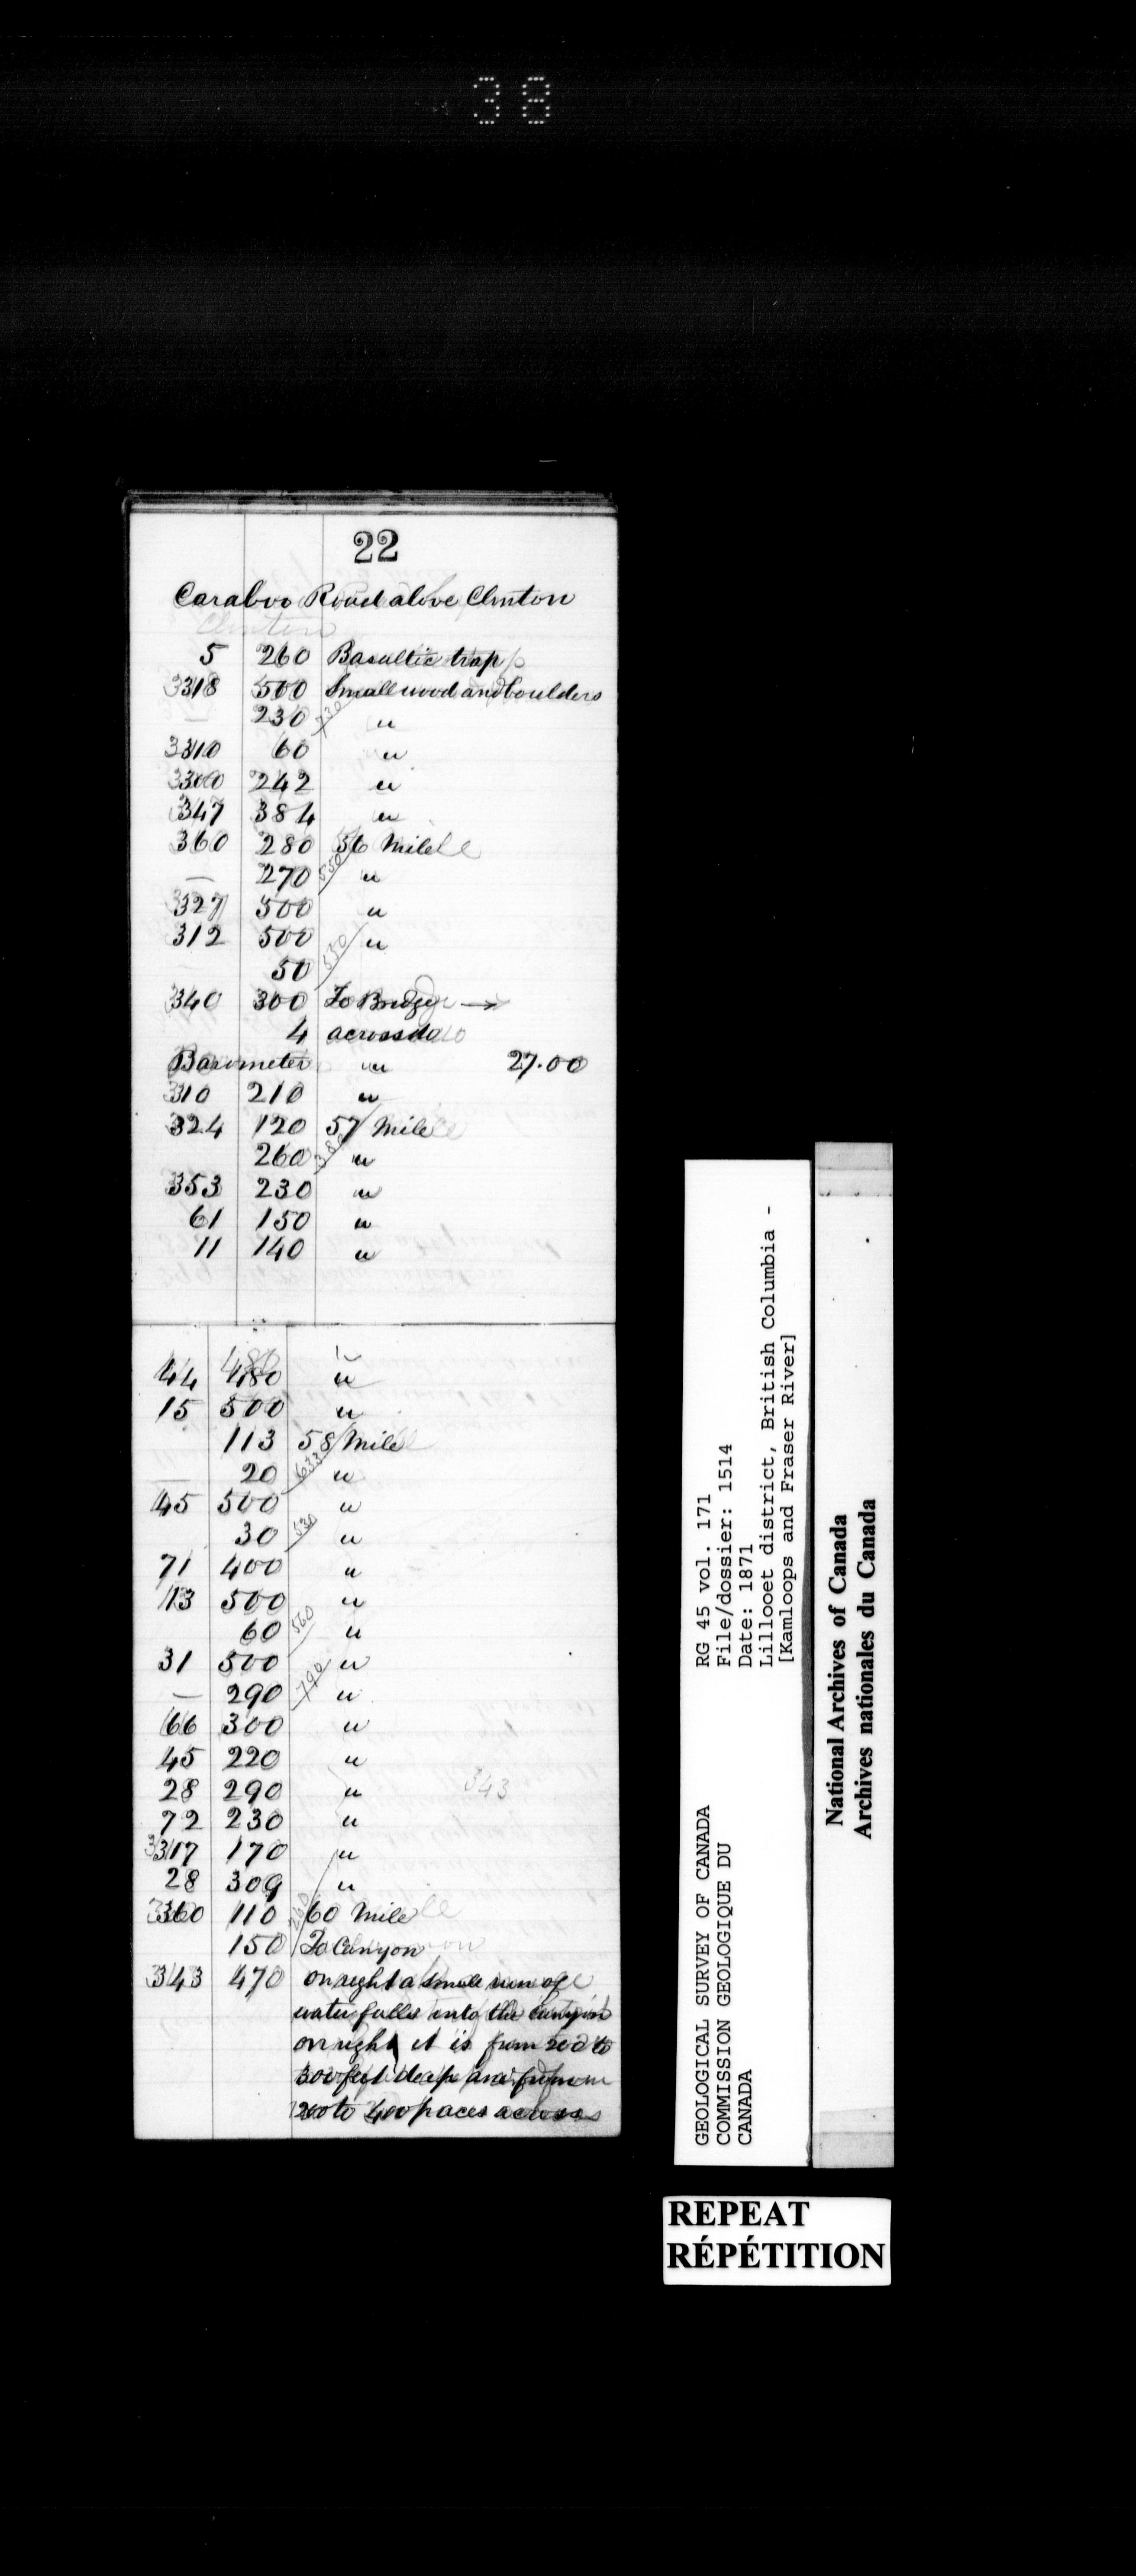 38
22
Caraboo Road above Clinton
Clinton
5 260 Basaltic trap
318 500 Small wood and boulders
— 230 730 "
310 60 "
300 242 "
347 384 "
360 280 56 Mile
— 270 550 "
327 500 "
312 500 "
50 550
340 300 To Bridge →
4 across do
Barometer " 27.00
310 210 "
324 120 57 Mile
260 380 "
353 230 "
61 150 "
11 140 "
44 480 "
15 500 "
113 58 Mile
— 20 633 "
45 500 "
30 530 "
71 400 "
13 500 "
60 560 "
31 500 "
— 290 790 "
66 300 "
45 220 "
28 290 " 343
72 230 "
317 170 "
28 309 "
360 110 60 Mile
150 260 To Canyon
343 470 on right a small run of
water falls into the canyon
on right it is from 200 to
300 feet deep and from
200 to 400 paces across
GEOLOGICAL SURVEY OF CANADA
COMMISSION GEOLOGIQUE DU
CANADA
RG 45 vol. 171
File/dossier: 1514
Date: 1871
Lillooet district, British Columbia -
[Kamloops and Fraser River]
National Archives of Canada
Archives nationales du Canada
REPEAT
RÉPÉTITION